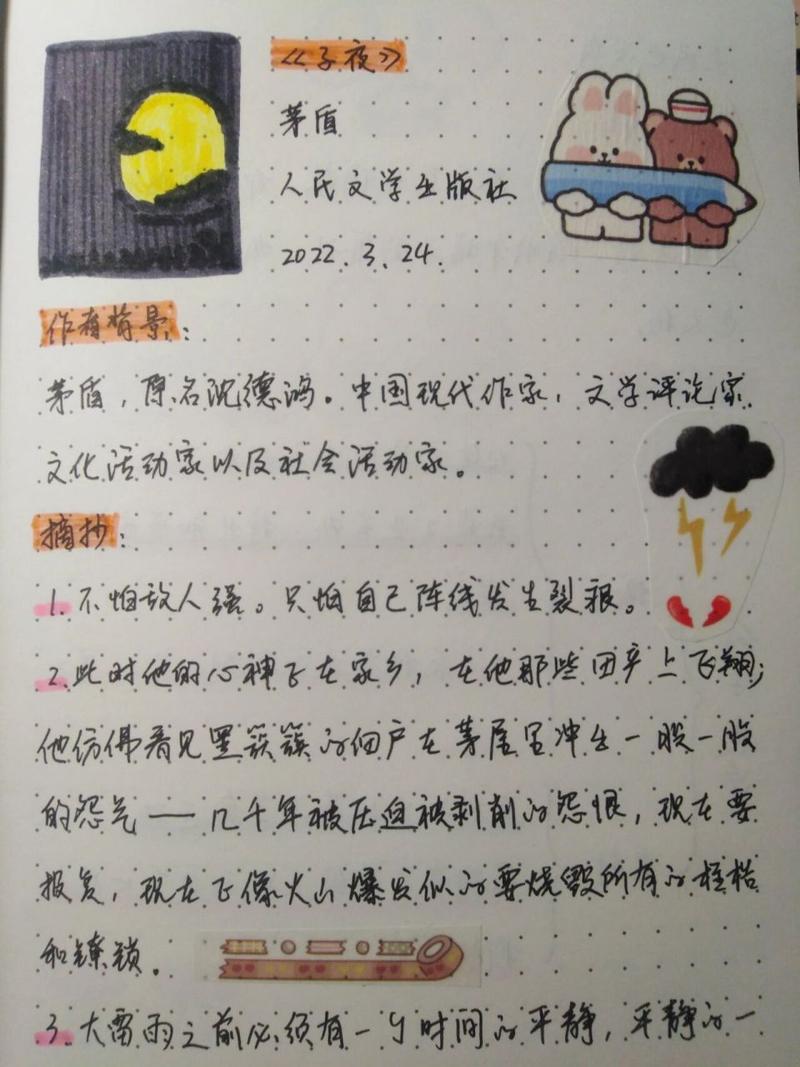 《子夜》
茅盾
人民文学出版社
2022.3.24.
作者背景:
茅盾,原名沈德鸿。中国现代作家,文学评论家
文化活动家以及社会活动家。
摘抄:
1.不怕敌人强。只怕自己阵线发生裂痕。
2.此时他的心神飞在家乡,在他那些田产上飞翔;
他仿佛看见黑簇簇的佃户在茅屋里冲出一股一股
的怨气——几千年被压迫被剥削的怨恨,现在要
报复,现在飞像火山爆发似的要烧毁所有的桎梏
和镣锁。
3.大雷雨之前必须有一个时间的平静,平静的一